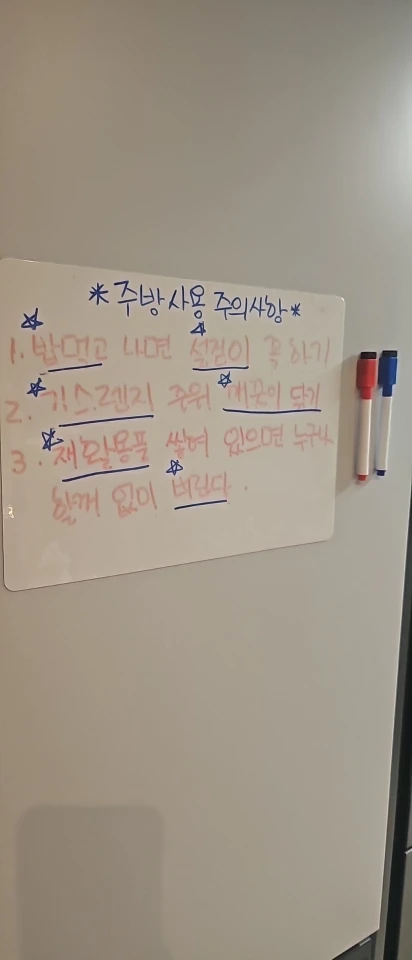 *주방사용 주의사항*
1. 밥먹고 나면 설겆이 꼭 하기
2. 가스렌지 주위 깨끗이 닦기
3. 재활용품 쌓여 있으면 누구나
할꺼 없이 버린다.